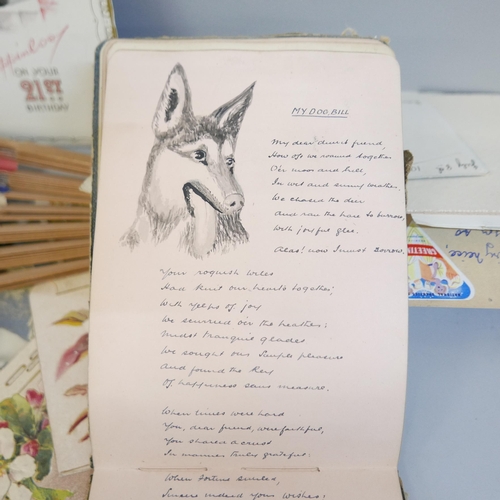 ON YOUR
21st
BIRTHDAY
MY DOG, BILL
My dear dumb friend,
How oft we roamed together
O'er moor and hill,
In wet and sunny weather,
We chased the deer
And ran the hare to burrow,
With joyful glee.
Alas! now I must sorrow,
Your roguish wiles
Had knit our hearts together,
With yelps of joy
We scurried o'er the heather;
Midst tranquil glades
We sought our simple pleasure
And found the key
Of happiness sans measure.
When times were hard
You, dear friend, were faithful,
You shared a crust
In manner truly grateful;
When fortune smiles,
Sincere indeed your wishes;
GREETINGS